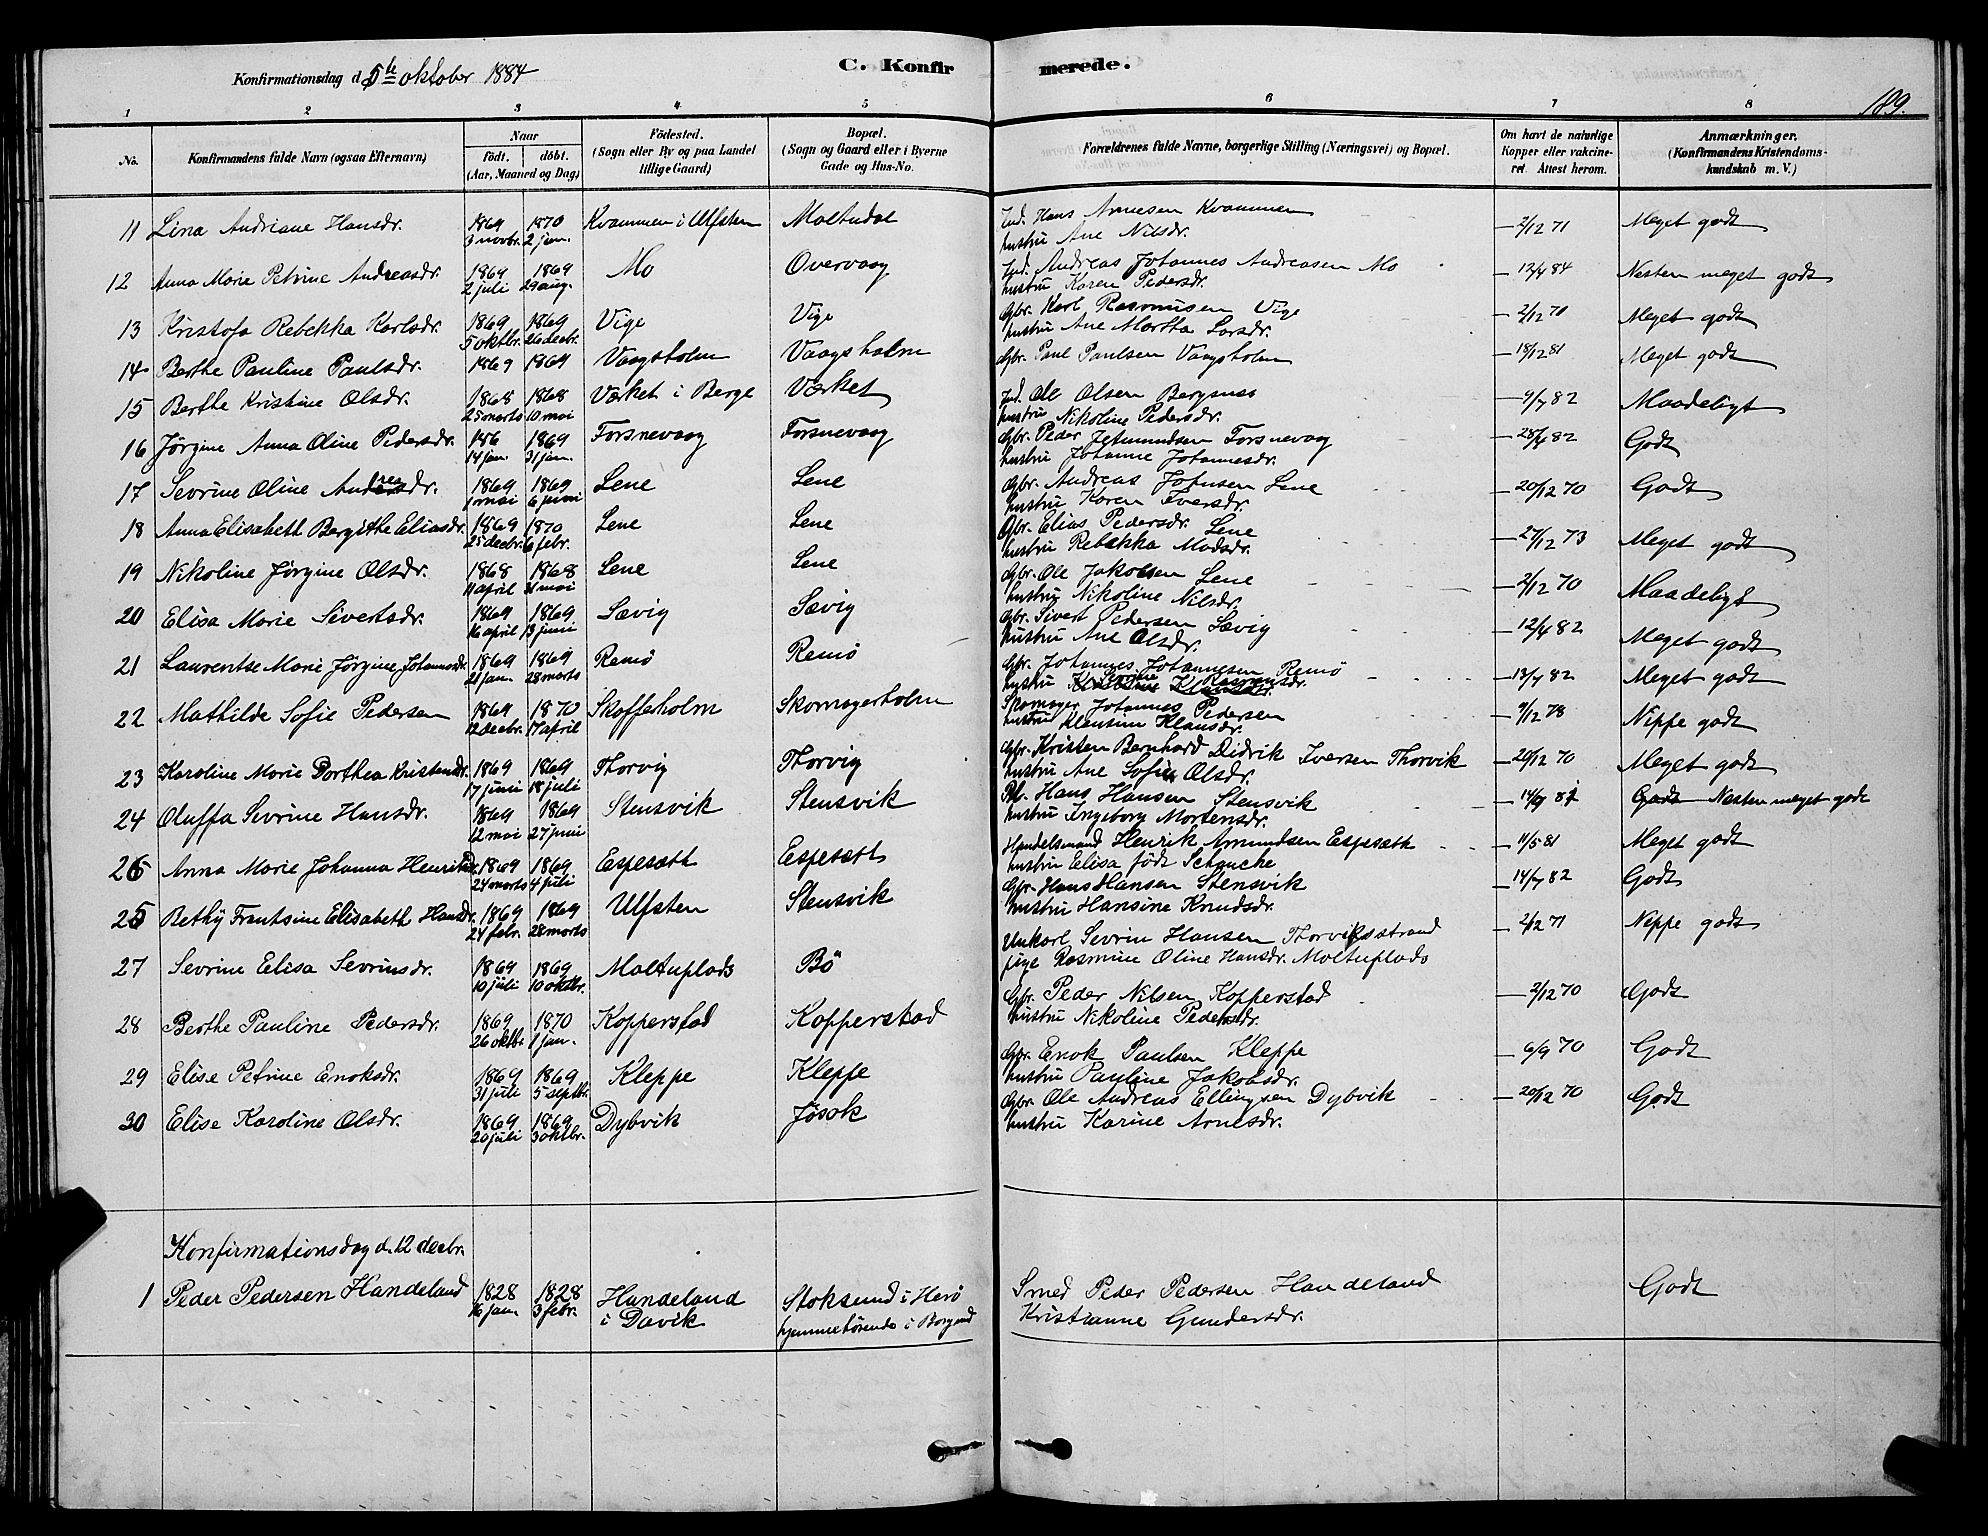 Konfirmationsdag d. 5te oktober 1884
C. Konfir merede.
189.
1 2 3 4 5 6 7 8
No. Konfirmandens fulde Navn (ogsaa Efternavn) Naar født. døbt. (Aar, Maaned og Dag) Fødested. (Sogn eller By og paa Landet tillige Gaard) Bopæl. (Sogn og Gaard eller i Byerne Gade og Hus-No. Forældrenes fulde Navne, borgerlige Stilling (Næringsvei) og Bopæl. Om havt de naturlige Kopper eller vakcineret. Attest herom. Anmærkninger. (Konfirmandens Kristendomskundskab m. V.)
11 Lina Andriane Hansdr. 1869 3 novbr. 1870 2 jan. Kvammen i Ulfsten Moltudal Ind. Hans Arnesen Kvammen
hustru Ane Nilsdr. 2/12 71 Meget godt
12 Anna Marie Petrine Andreasdr. 1869 2 juli 1869 29 aug. Mo Overvaag Ind. Andreas Johannes Andreasen Mo
hustru Karen Pedersdr. 12/4 84 Nesten meget godt
13 Kristofa Rebekka Karlsdr. 1869 5 oktbr. 1869 26 decbr. Vige Vige Gbr. Karl Rasmusen Vige
hustru Ane Martha Larsdr. 2/12 70 Meget godt
14 Berthe Pauline Paulsdr. 1869 1869 Vaagsholm Vaagsholm Gbr. Paul Paulsen Vaagsholm 18/12 81 Meget godt
15 Berthe Kristine Olsdr. 1868 25 marts 1868 10 mai Værket i Berge Værket Ind. Ole Olsen Bergsnes
hustru Nikoline Pedersdr. 9/7 82 Maadeligt
16 Jørgine Anna Oline Pedersdr. 186 14 jan. 1869 31 jan. Forsnevaag Forsnevaag Gbr. Peder Jetmundsen Forsnevaag
hustru Johanne Johannesdr. 28/4 82 Godt
17 Sevrine Oline Andreasdr. 1869 1 mai 1869 6 juni Lene Lene Gbr. Andreas Johnsen Lene
hustru Karen Iversdr. 20/12 70 Godt
18 Anna Elisabeth Bergithe Eliasdr. 1869 25 decbr. 1870 6 febr. Lene Lene Gbr. Elias Pedersdr. Lene
hustru Rebekka Madsdr. 27/12 73 Meget godt
19 Nikoline Jørgine Olsdr. 1868 11 april 1868 21 mai Lene Lene Gbr. Ole Jakobsen Lene
hustru Nikoline Nilsdr. 2/12 70 Maadeligt
20 Elisa Marie Sivertsdr. 1869 16 april 1869 13 juni Sævig Sævig Gbr. Sivert Pedersen Sævig
hustru Ane Olsdr. 12/4 82 Meget godt
21 Laurentse Marie Jørgine Johannesdr. 1869 21 jan. 1869 28 marts Remø Remø Gbr. Johannes Johannesen Remø
hustru Rasmusdr. 13/7 82 Meget godt
22 Mathilde Sofie Pedersen 1869 12 decbr. 1870 17 april Skofferholm Skomagerholm Skomager Johannes Pedersen
hustru Klausine Klausdr. 9/12 78 Neppe godt
23 Karoline Marie Dorthea Kristensdr. 1869 17 juni 1869 18 juli Thorvig Thorvig Gbr. Kristen Bernhard Didrik Iversen Thorvik
hustru Ane Sofie Olsdr. 20/12 70 Meget godt
24 Oluffa Sevrine Hansdr. 1869 12 mai 1869 27 juni Stensvik Stensvik Hans Hansen Stensvik
hustru Ingeborg Mortensdr. 14/9 81 Godt Nesten meget godt
26 Anna Marie Johanna Henriksdr. 1869 24 marts 1869 4 juli Espesæth Espesæth Handelsmand Henrik Amundsen Espesæth
hustru Elisa født Schanche 11/5 81 Meget godt
25 Bethy Frantsine Elisabeth Hansdr. 1869 24 febr. 1869 28 marts Ulfsten Stensvik Gbr. Hans Hansen Stensvik
hustru Hansine Knudsdr. 14/7 82 Godt
27 Sevrine Elisa Sevrinsdr. 1869 10 juli 1869 10 oktbr. Moltuplads Bö Unkarl Sevrin Hansen Thorviksstrand
pige Rasmine Oline Hansdr. Moltuplads 2/12 71 Neppe godt
28 Berthe Pauline Pedersdr. 1869 26 oktbr. 1870 1 jan. Kopperstad Kopperstad Gbr. Peder Nilsen Kopperstad
hustru Nikoline Pedersdr. 2/12 70 Godt
29 Elise Petrine Enoksdr. 1869 31 juli 1869 5 septbr. Kleppe Kleppe Gbr. Enok Paulsen Kleppe
hustru Pauline Jakobsdr. 6/9 70 Godt
30 Elise Karoline Olsdr. 1869 20 juli 1869 3 oktbr. Dybvik Jøsok Gbr. Ole Andreas Ellingsen Dybvik
hustru Karine Arnesdr. 20/12 70 Godt
Konfirmationsdag d. 12 decbr.
1 Peder Pedersen Handeland 1828 16 jan. 1828 3 febr. Handeland i Davik Stoksund i Herö hjemmehørende i Borgund Smed Peder Pedersen Handeland
Kristianne Gundersdr. Godt